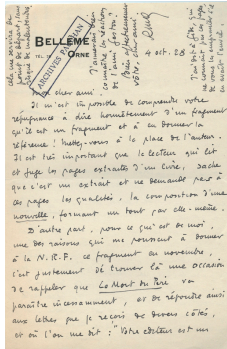 BELLÊME
ORNE
TEL.
ARCHIVES PAULHAN
4 oct. 29
Mon cher ami.
Il m'est impossible de comprendre votre
répugnance à dire honnêtement d'un fragment
qu'il est un fragment et à en donner la
référence ! Mettez-vous à la place de l'auteur.
Il est très important que le lecteur qui lit
et juge les pages extraites d'un livre, sache
que c'est un extrait et ne demande pas à
ces pages les qualités, la composition d'une
nouvelle, formant un tout par elle-même.
D'autre part, pour ce qui est de moi,
une des raisons qui me poussent à donner
à la N.R.F. ce fragment en novembre,
c'est justement de trouver là une occasion
de rappeler que La Mort du Père va
paraître incessamment, et de répondre ainsi
aux lettres que je reçois de divers côtés,
et où l'on me dit : "Votre éditeur est un